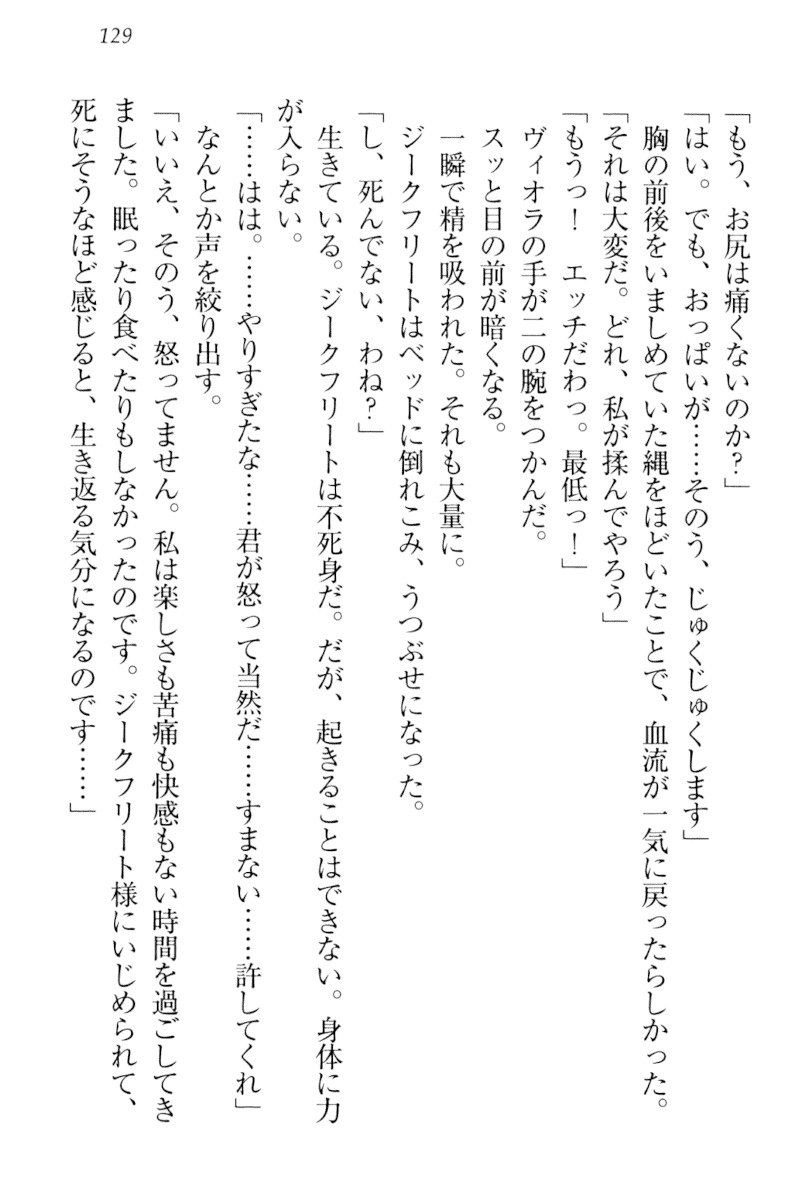 129
「もう、お尻は痛くないのか？」
「はい。でも、おっぱいが……そのう、じゅくじゅくします」
胸の前後をいましめていた縄をほどいたことで、血流が一気に戻ったらしかった。
「それは大変だ。どれ、私が揉んでやろう」
「もうっ！　エッチだわっ。最低っ！」
ヴィオラの手が二の腕をつかんだ。
スッと目の前が暗くなる。
一瞬で精を吸われた。それも大量に。
ジークフリートはベッドに倒れこみ、うつぶせになった。
「し、死んでない、わね？」
生きている。ジークフリートは不死身だ。だが、起きることはできない。身体に力
が入らない。
「……はは。……やりすぎたな……君が怒って当然だ……すまない……許してくれ」
なんとか声を絞り出す。
「いいえ、そのう、怒ってません。私は楽しさも苦痛も快感もない時間を過ごしてき
ました。眠ったり食べたりもしなかったのです。ジークフリート様にいじめられて、
死にそうなほど感じると、生き返る気分になるのです……」